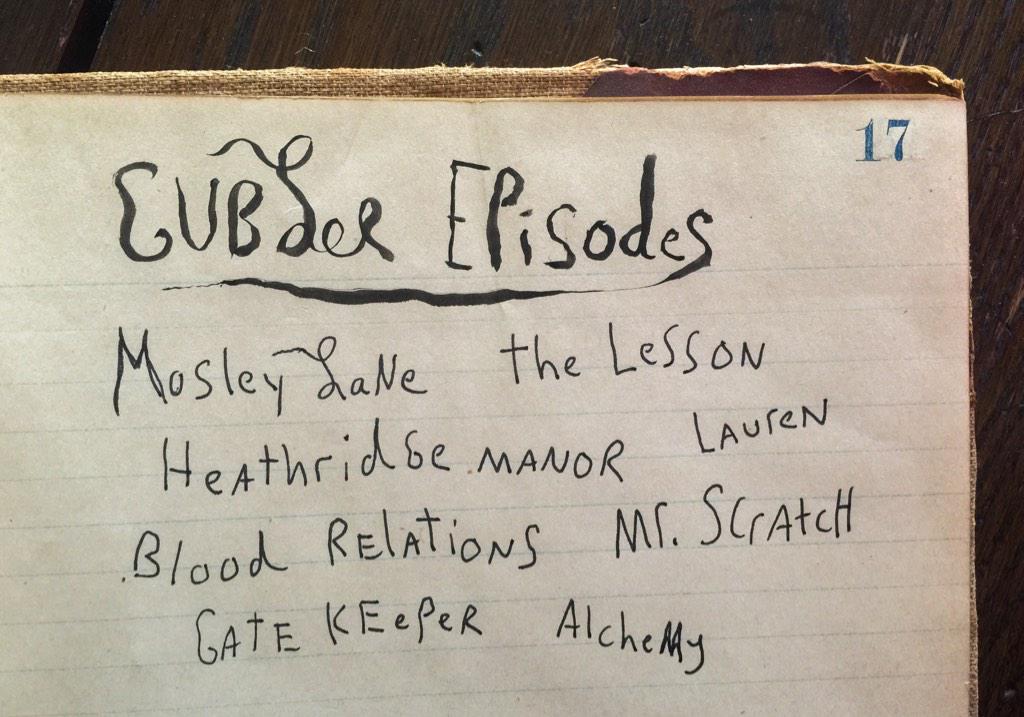 17
GUBLER EPisodes
Mosley LaNe the LeSSON
HeAthridGe MANOR LAUreN
Blood RElATiONS Mr. SCrAtcH
GAtE KEePeR AlcheMy